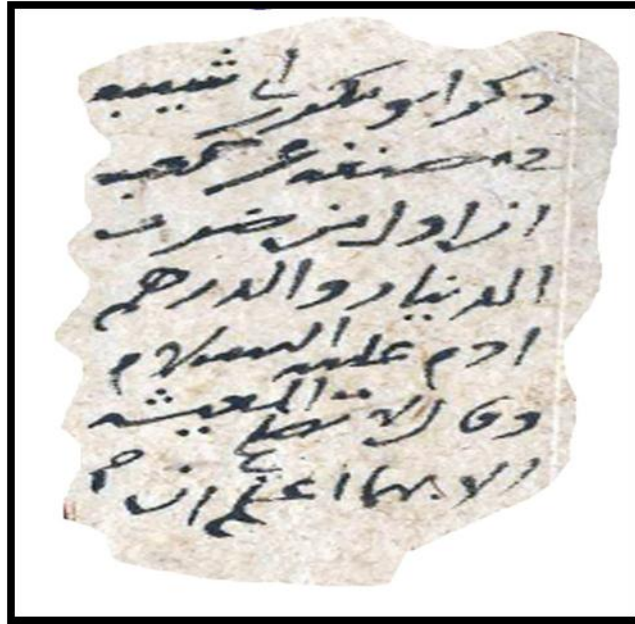 ذكر ابو بكر ابي شيبه
في مصنفه عن كعب
ان اول من ضرب
الدينار والدرهم
ادم عليه السلام
وقال لا تصلح المعيشه
الا بهما اعلم ان